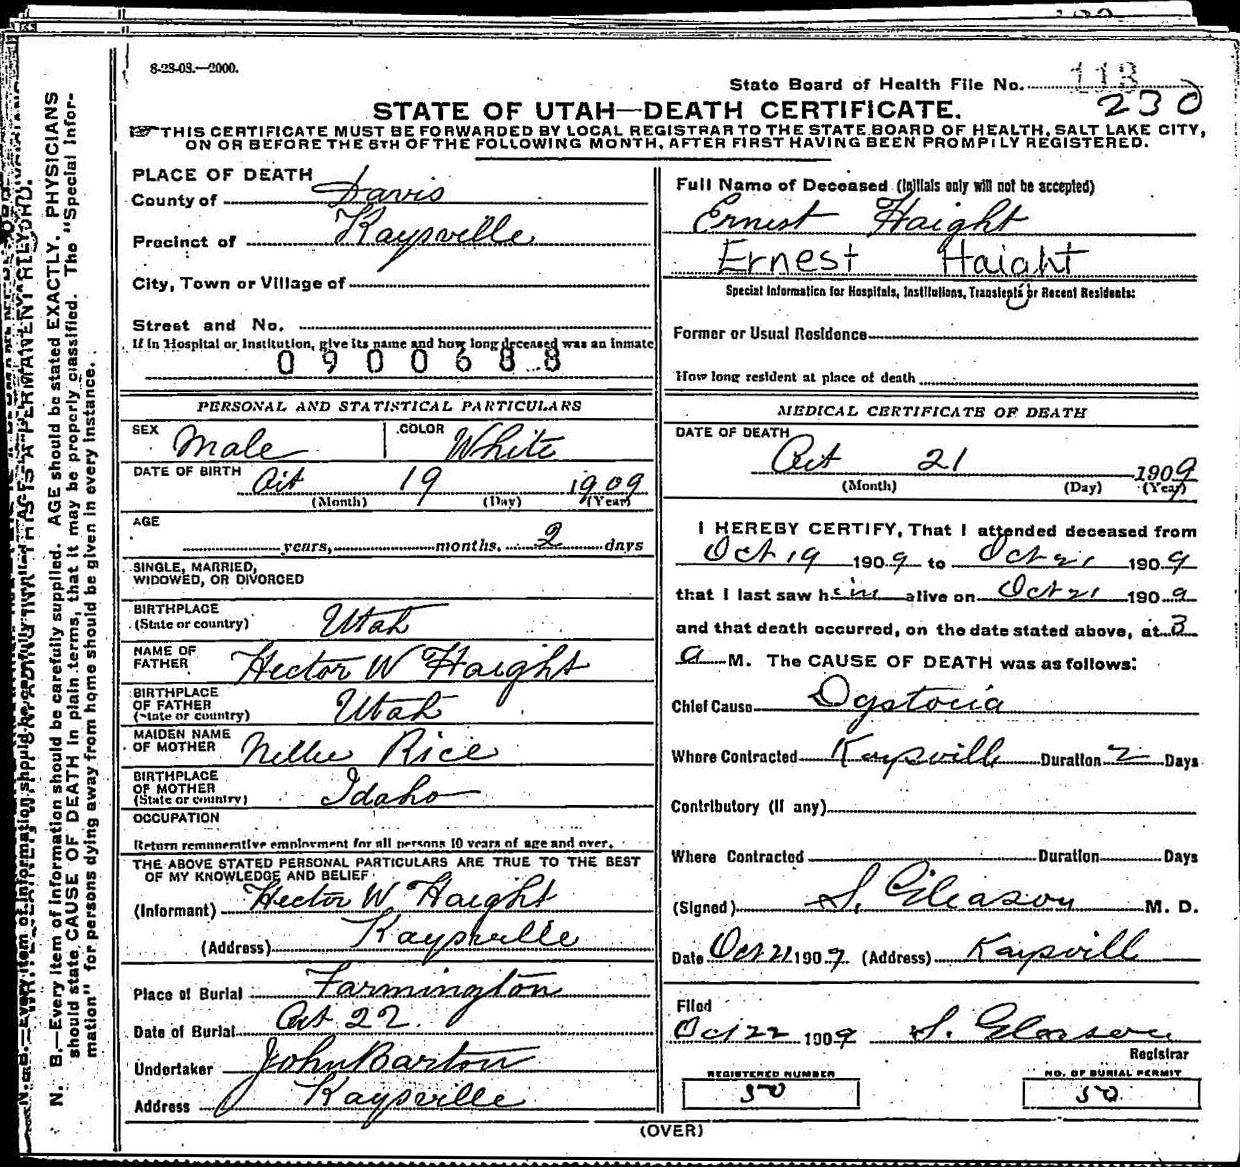 8-23-08.—2000.
State Board of Health File No. 113
230
STATE OF UTAH—DEATH CERTIFICATE.
THIS CERTIFICATE MUST BE FORWARDED BY LOCAL REGISTRAR TO THE STATE BOARD OF HEALTH, SALT LAKE CITY,
ON OR BEFORE THE 5TH OF THE FOLLOWING MONTH, AFTER FIRST HAVING BEEN PROMPTLY REGISTERED.
PLACE OF DEATH
County of Davis
Precinct of Kaysville
City, Town or Village of
Street and No.
If in Hospital or Institution, give its name and how long deceased was an inmate
0900688
Full Name of Deceased (Initials only will not be accepted)
Ernest Haight
Ernest Haight
Special Information for Hospitals, Institutions, Transients or Recent Residents:
Former or Usual Residence
How long resident at place of death
PERSONAL AND STATISTICAL PARTICULARS
SEX Male COLOR White
DATE OF BIRTH Oct 19 1909
(Month) (Day) (Year)
AGE
years, months, 2 days
SINGLE, MARRIED,
WIDOWED, OR DIVORCED
BIRTHPLACE
(State or country) Utah
NAME OF
FATHER Hector W Haight
BIRTHPLACE
OF FATHER
(State or country) Utah
MAIDEN NAME
OF MOTHER Nellie Rice
BIRTHPLACE
OF MOTHER
(State or country) Idaho
OCCUPATION
Return remunerative employment for all persons 10 years of age and over.
THE ABOVE STATED PERSONAL PARTICULARS ARE TRUE TO THE BEST
OF MY KNOWLEDGE AND BELIEF
(Informant) Hector W Haight
(Address) Kaysville
Place of Burial Farmington
Date of Burial Oct 22.
Undertaker John Barton
Address Kaysville
MEDICAL CERTIFICATE OF DEATH
DATE OF DEATH
Oct 21 1909
(Month) (Day) (Year)
I HEREBY CERTIFY, That I attended deceased from
Oct 19 1909 to Oct 21 1909
that I last saw him alive on Oct 21 1909
and that death occurred, on the date stated above, at 3
a M. The CAUSE OF DEATH was as follows:
Chief Cause Dystocia
Where Contracted Kaysvill Duration 2 Days
Contributory (If any)
Where Contracted Duration Days
(Signed) S. Gleason M. D.
Date Oct 21 1909. (Address) Kaysvill
Filed
Oct 22 1909 S. Gleason
Registrar
REGISTERED NUMBER
50
NO. OF BURIAL PERMIT
50
(OVER)
N. B.—Every item of information should be carefully supplied. AGE should be stated EXACTLY. PHYSICIANS
should state CAUSE OF DEATH in plain terms, that it may be properly classified. The "Special Infor-
mation" for persons dying away from home should be given in every instance.